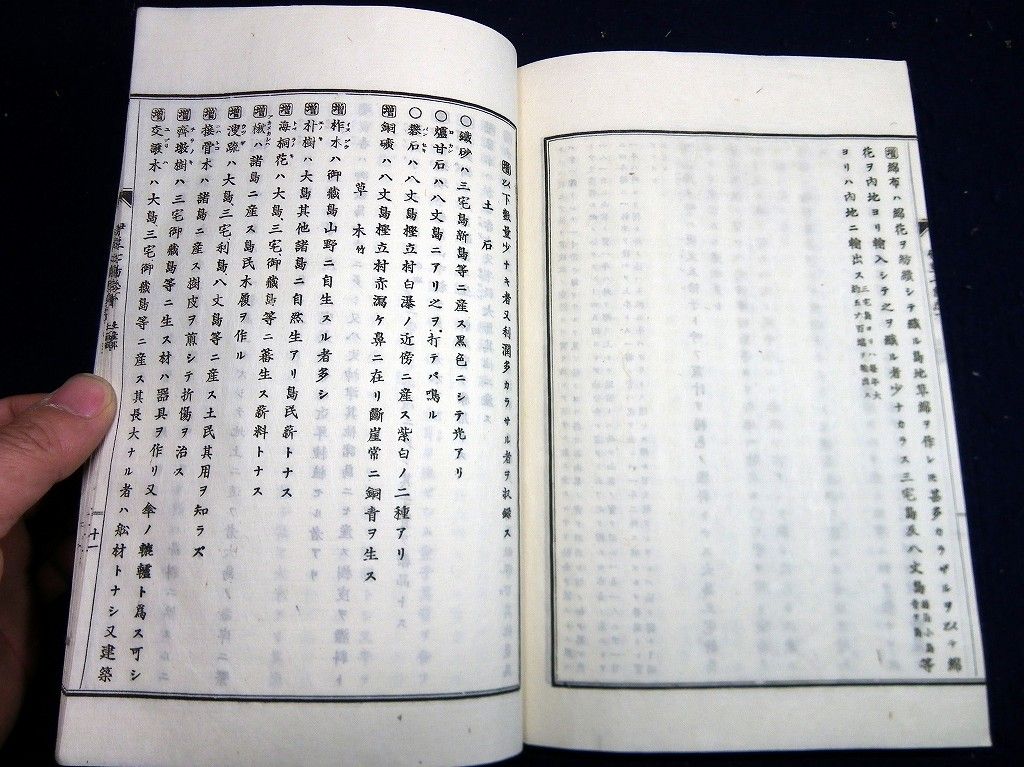 増 綿布ハ綿花ヲ紡績シテ織ル島地草綿ヲ作レ𪜈甚多カラザルヲ以テ綿
花ヲ内地ヨリ輸入シテ之ヲ織ル者少ナカラス三宅島及八丈島等
ヨリハ内地ニ輸出ス
増 以下熱量少ナキ者又利潤多カラサル者ヲ収録ス
土石
〇鐵砂ハ三宅島新島等ニ産ス黒色ニシテ光アリ
〇爐甘石ハ八丈島ニアリ之ヲ打テハ鳴ル
〇礬石ハ八丈島樫立村白瀑ノ近傍ニ産ス紫白ノ二種アリ
増 銅礦ハ八丈島樫立村赤瀉ケ鼻ニ在リ斷崖常ニ銅青ヲ生ス
草木竹
増 柞木ハ御藏島山野ニ自生スル者多シ
増 朴樹ハ大島其他諸島ニ自然生アリ島民薪トナス
増 海桐花ハ大島三宅御藏島等ニ蕃生ス薪料トナス
増 楸ハ諸島ニ産ス島民木履ヲ作ル
増 溲疏ハ大島三宅利島八丈島等ニ産ス土民其用ヲ知ラズ
増 接骨木ハ諸島ニ産ス樹皮ヲ煎シテ折傷ヲ治ス
増 齊墩樹ハ三宅御藏島等ニ生ス材ハ器具ヲ作リ又傘ノ轆轤ト爲ス可シ
増 交讓木ハ大島三宅御藏島等ニ産ス其長大ナル者ハ舩材トナシ又建築
十一